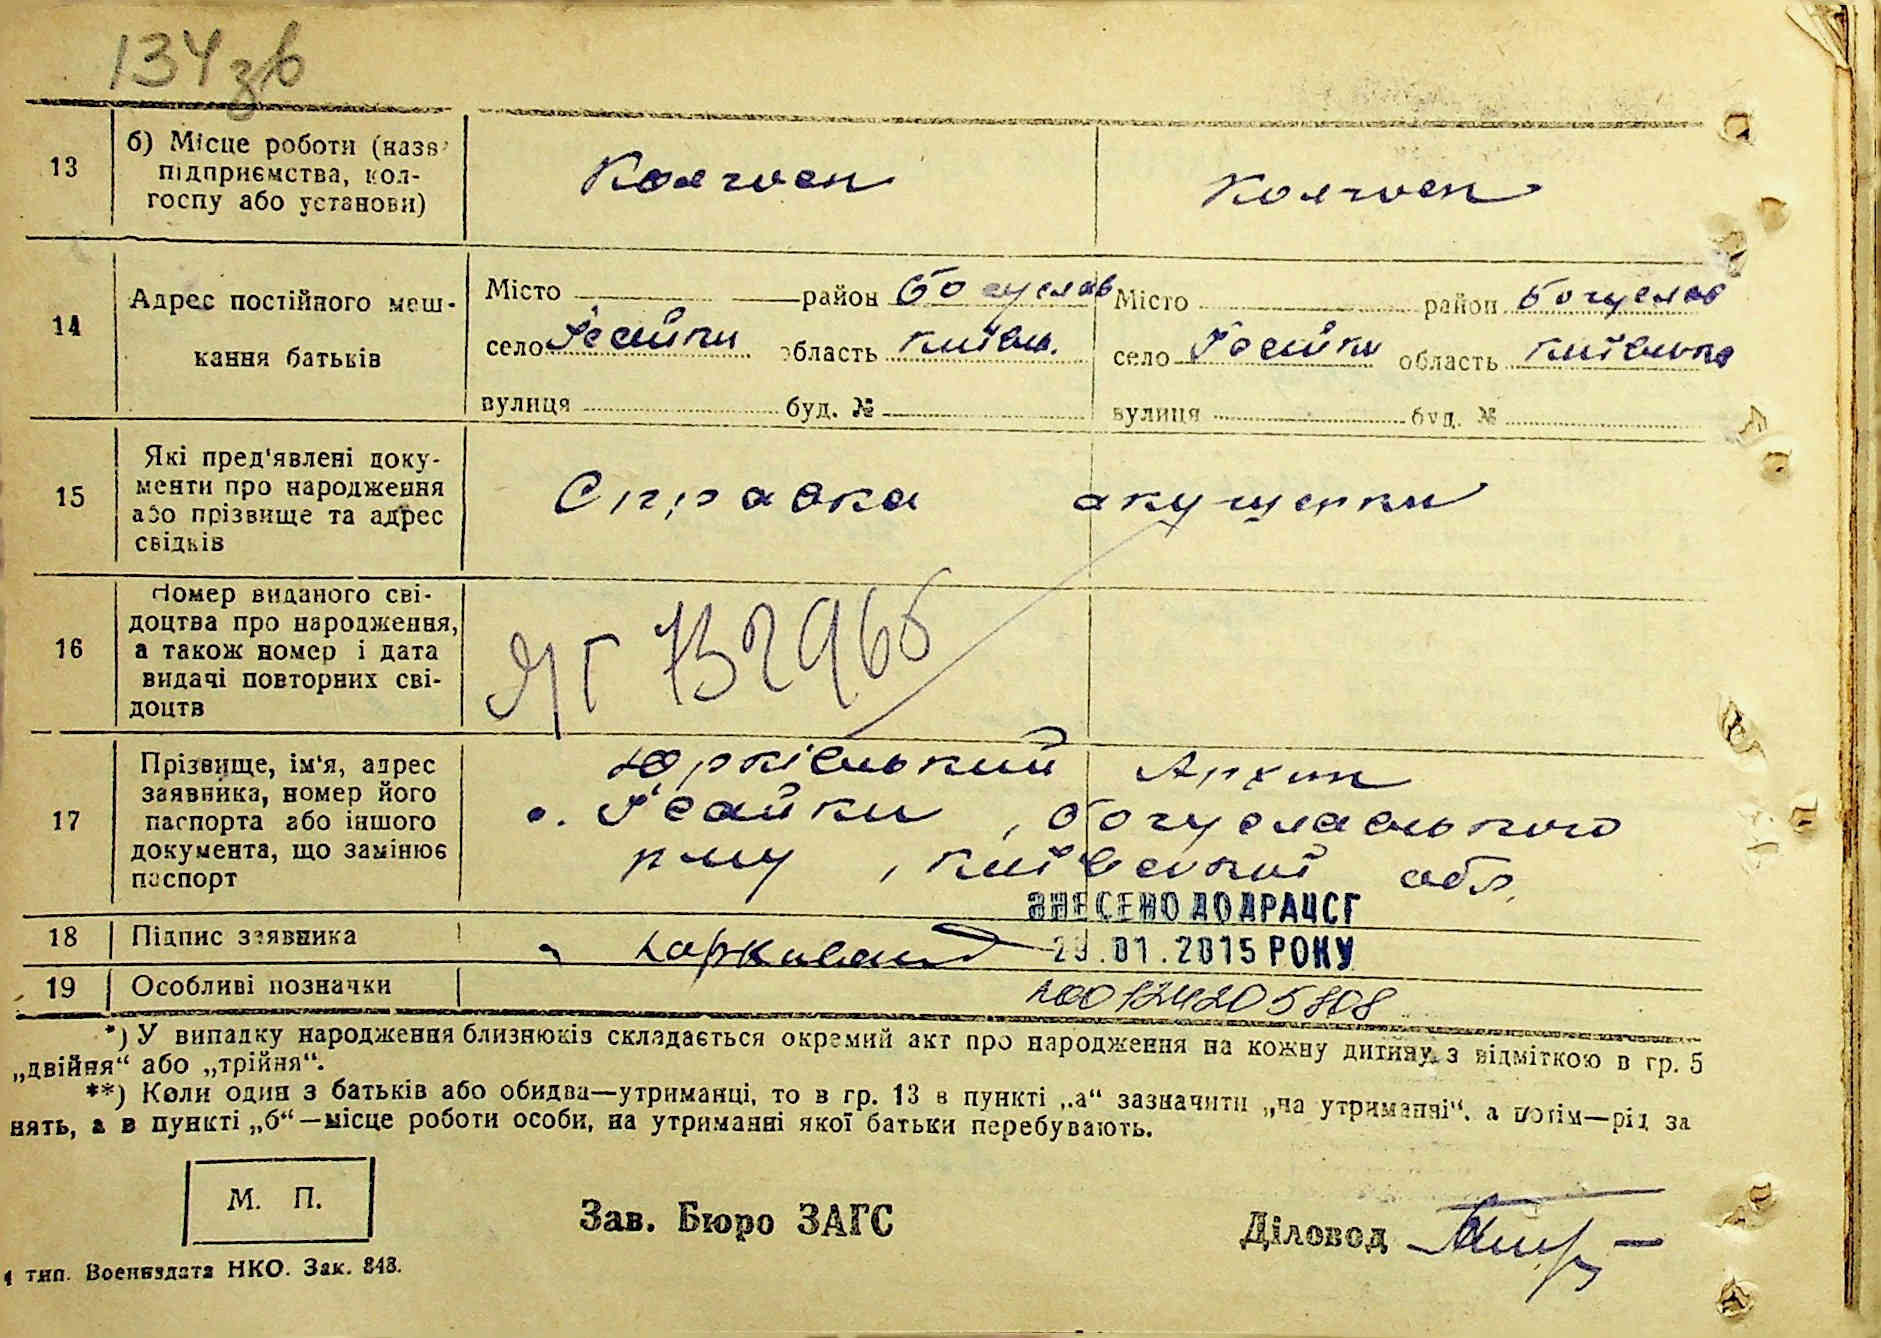 134 зв
13
б) Місце роботи (назва
підприємства, кол-
госпу або установи)
Колгосп
Колгосп
14
Адрес постійного меш-
кання батьків
Місто район Богуслав
село Ісайки область Київськ.
вулиця буд. №
Місто район Богуслав
село Ісайки область Київська
вулиця буд. №
15
Які пред'явлені доку-
менти про народження
або прізвище та адрес
свідків
Справка акушерки
16
Номер виданого сві-
доцтва про народження,
а також номер і дата
видачі повторних сві-
доцтв
ЯГ
17
Прізвище, ім'я, адрес
заявника, номер його
паспорта або іншого
документа, що замінює
паспорт
Юрківський Архип
с. Ісайки, Богуславського
р-ну, Київської обл.
ВНЕСЕНО ДО ДРАЦСГ
29.01.2015 РОКУ
18
Підпис заявника
19
Особливі позначки
00124205808
*) У випадку народження близнюків складається окремий акт про народження на кожну дитину з відміткою в гр. 5
„двійня“ або „трійня“.
**) Коли один з батьків або обидва—утриманці, то в гр. 13 в пункті „а“ зазначити „на утриманні“, а потім—рід за
нять, а в пункті „б“—місце роботи особи, на утриманні якої батьки перебувають.
М. П.
Зав. Бюро ЗАГС
Діловод
1 тип. Воениздата НКО. Зак. 848.